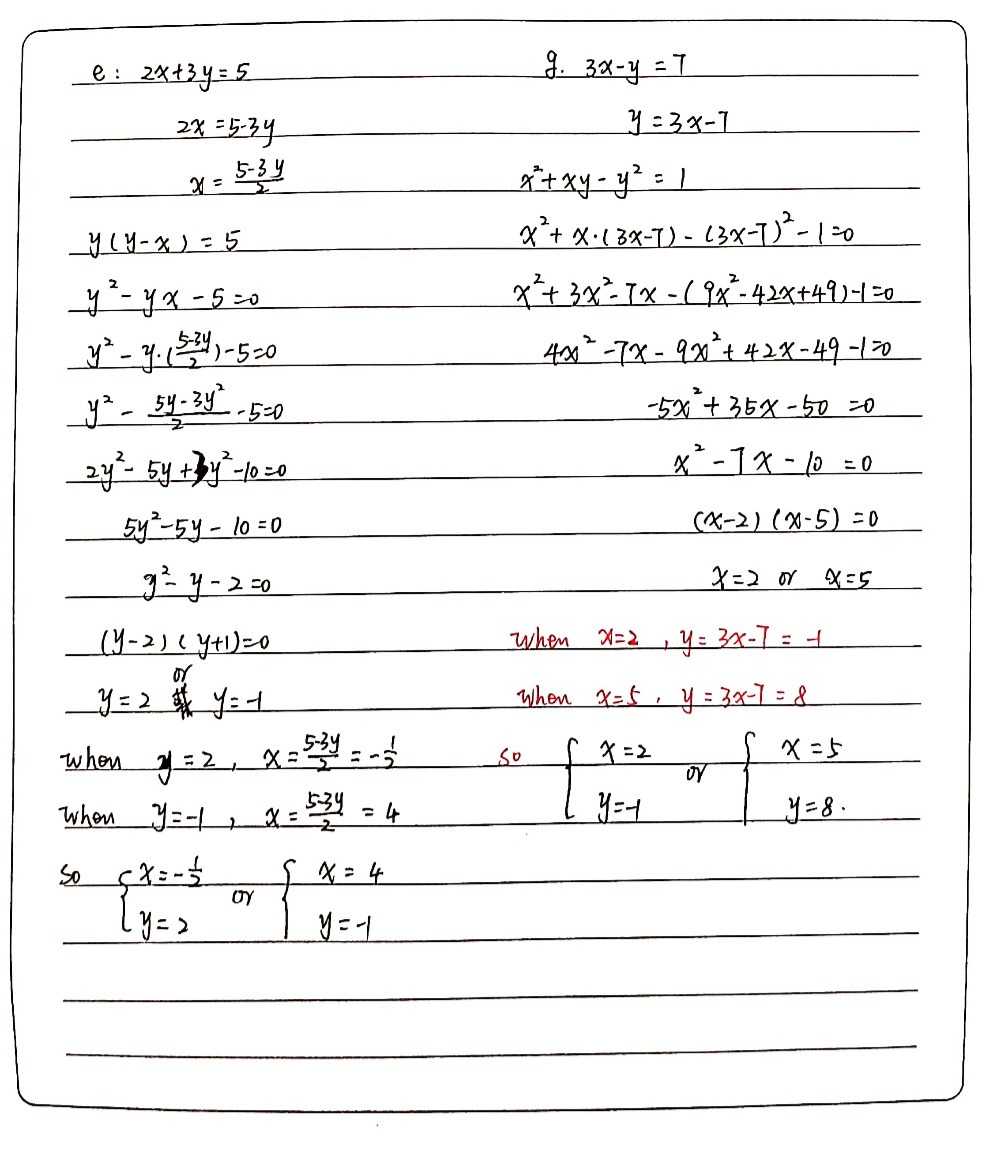 e: 2x+3y=5
2x=5-3y
x = \frac{5-3y}{2}
y(y-x) = 5
y² - yx - 5 = 0
y² - y·(\frac{5-3y}{2}) - 5 = 0
y² - \frac{5y-3y²}{2} - 5 = 0
2y² - 5y + 3y² - 10 = 0
5y² - 5y - 10 = 0
y² - y - 2 = 0
(y-2)(y+1) = 0
y = 2 or y = -1
when y = 2, x = \frac{5-3y}{2} = -\frac{1}{2}
when y = -1, x = \frac{5-3y}{2} = 4
so { x = -\frac{1}{2} or { x = 4
y = 2 y = -1
g. 3x-y = 7
y = 3x-7
x² + xy - y² = 1
x² + x·(3x-7) - (3x-7)² - 1 = 0
x² + 3x² - 7x - (9x² - 42x + 49) - 1 = 0
4x² - 7x - 9x² + 42x - 49 - 1 = 0
-5x² + 35x - 50 = 0
x² - 7x - 10 = 0
(x-2)(x-5) = 0
x = 2 or x = 5
when x = 2, y = 3x-7 = -1
when x = 5, y = 3x-7 = 8
so { x = 2 or { x = 5
y = -1 y = 8.